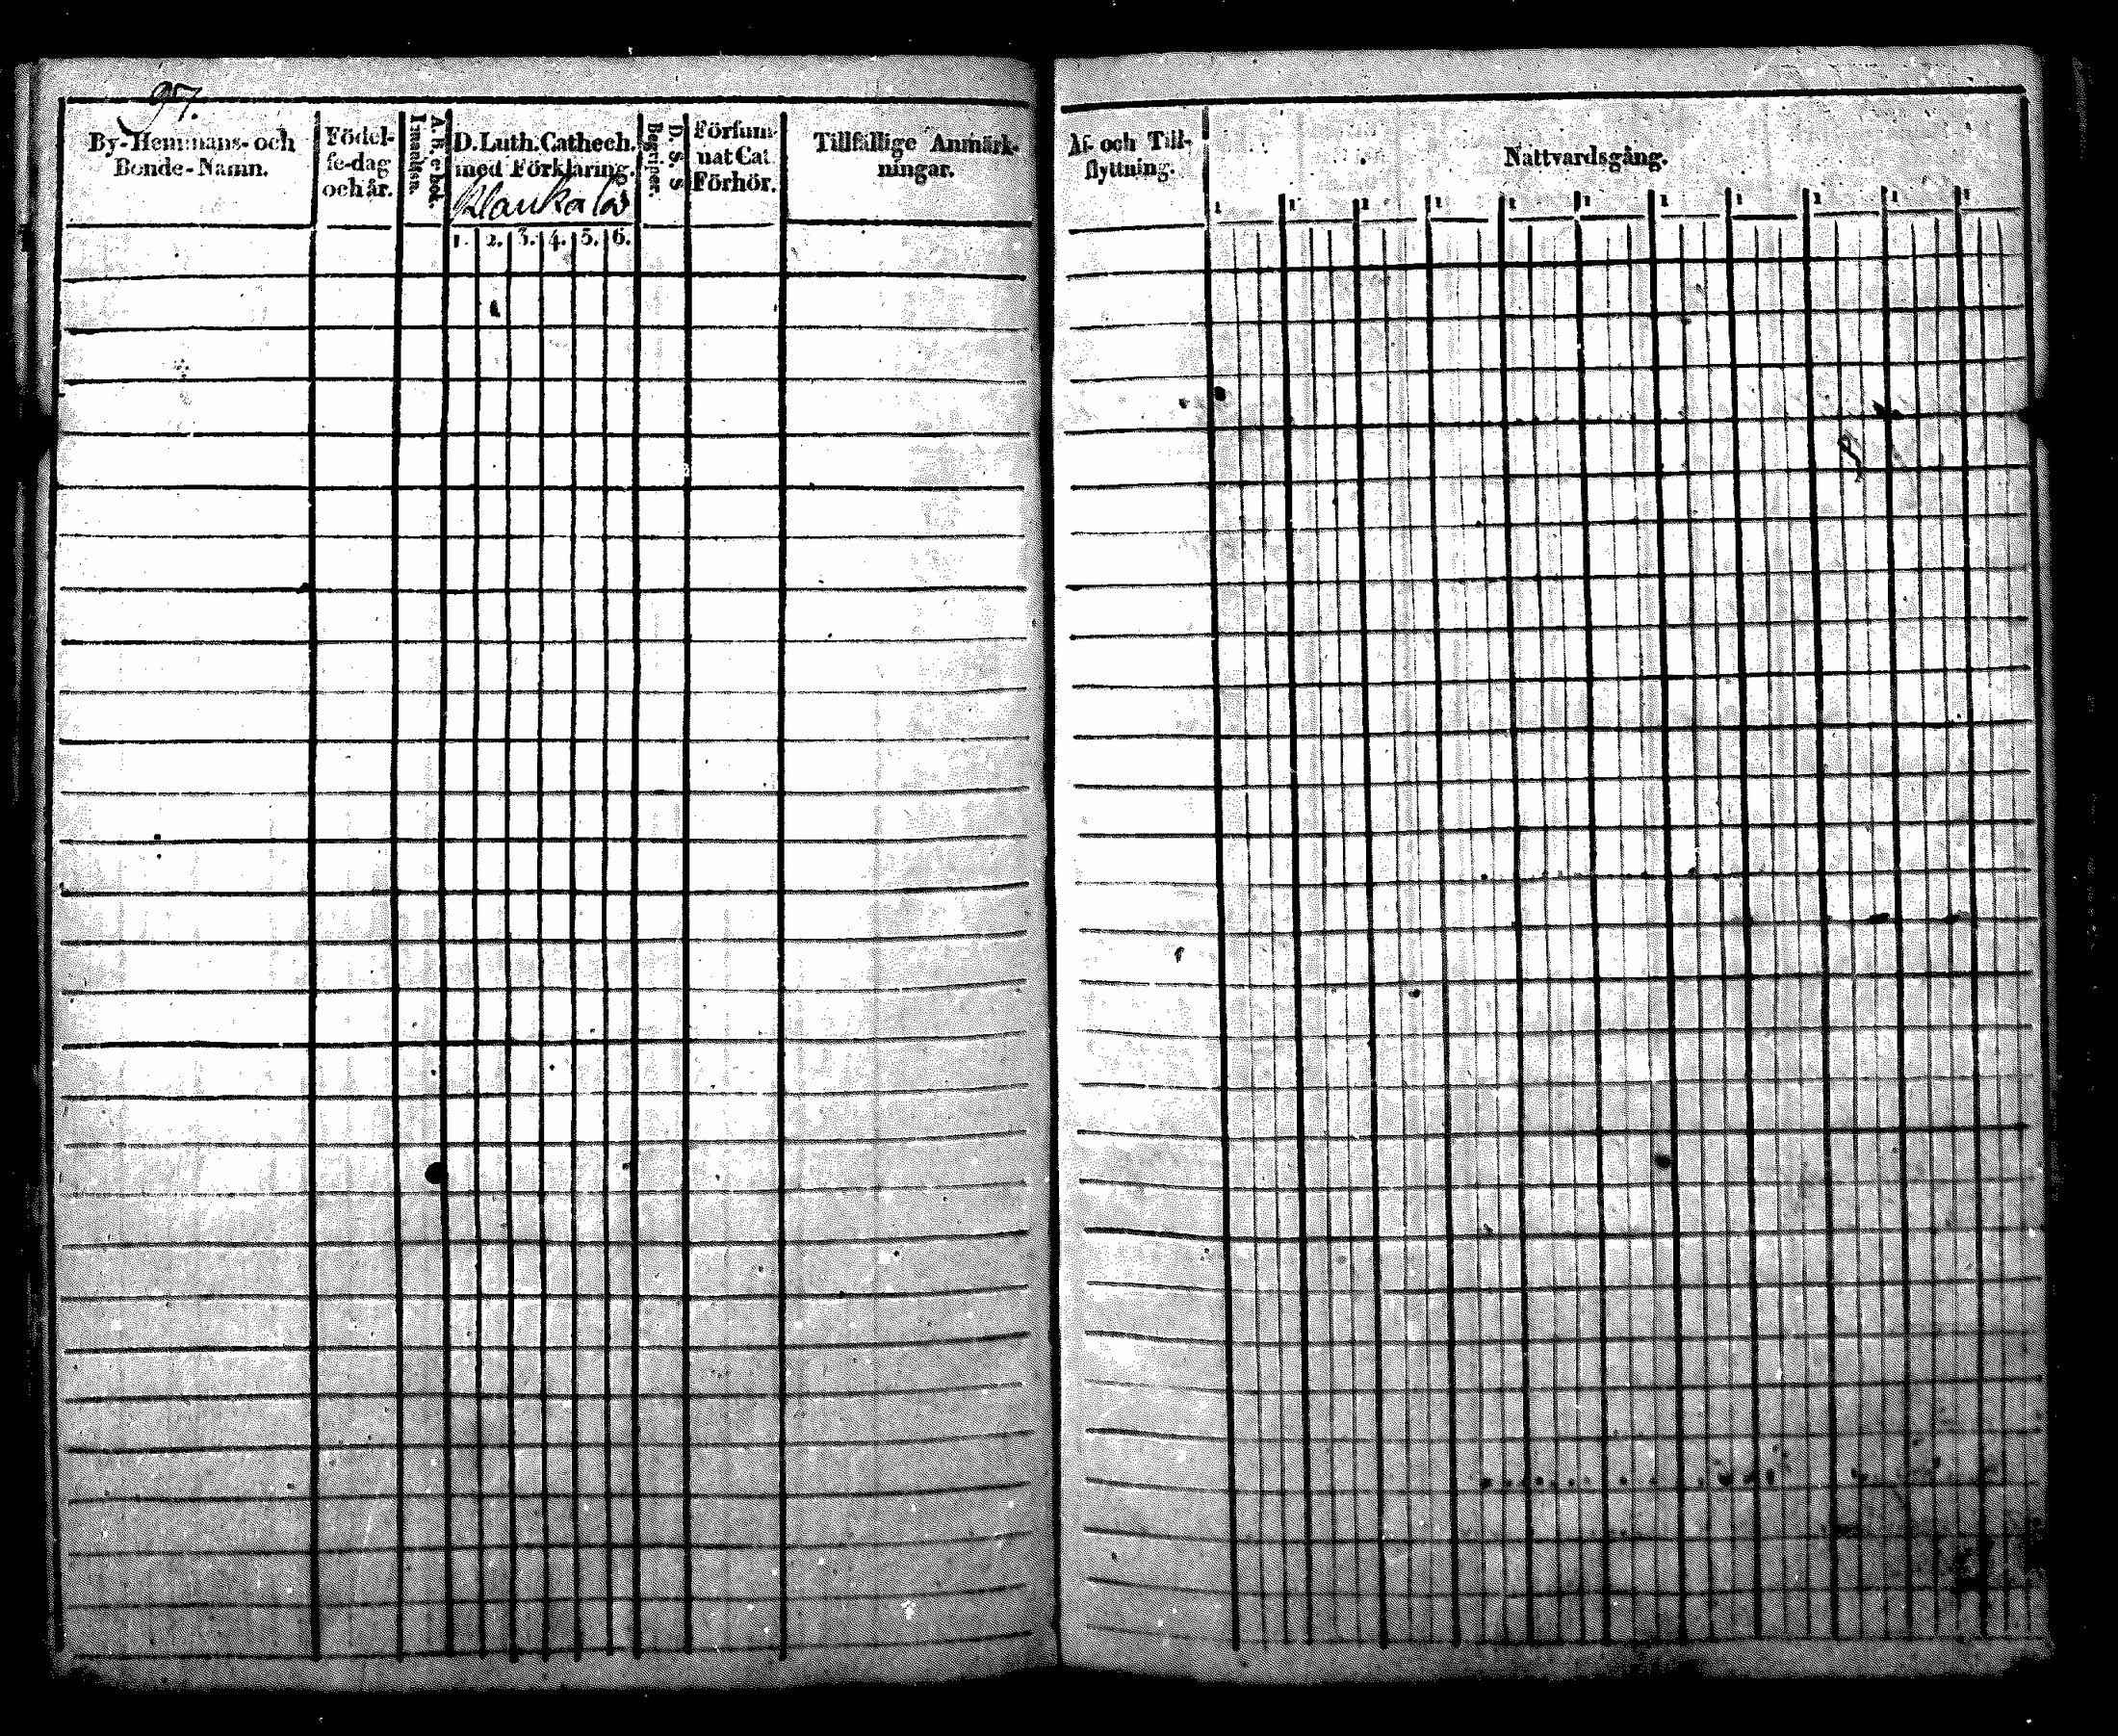 97.
By-Hemmans- och
Bonde-Namn.
Födel-
se-dag
och år.
A. B. c-bok.
Innanläsn.
D. Luth. Cathech.
med Förklaring.
Klaukala
1. 2. 3. 4. 5. 6.
D. S. S
Begriper.
Försum-
nat Cat
Förhör.
Tillfällige Anmärk-
ningar.
Af- och Till-
flyttning.
Nattvardsgång.
1 1 1 1 1 1 1 1 1 1 1